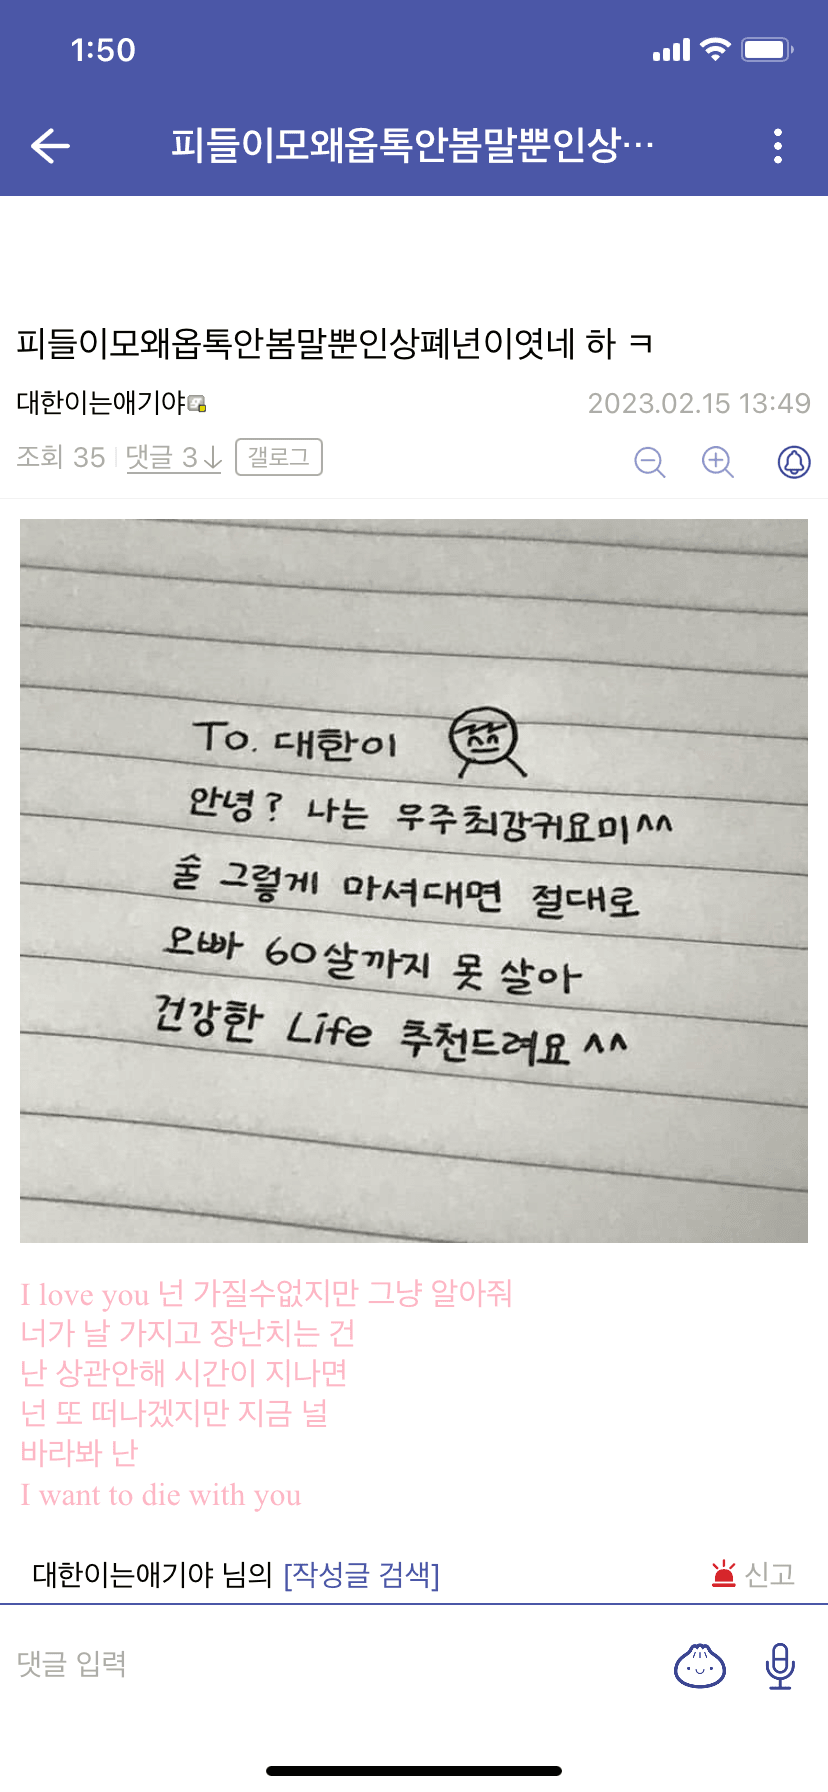 1:50
피들이모왜옵톡안봄말뿐인상…
피들이모왜옵톡안봄말뿐인상폐년이엿네 하 ㅋ
대한이는애기야
2023.02.15 13:49
조회 35 댓글 3↓ 갤로그
To. 대한이
안녕? 나는 우주최강귀요미^^
술 그렇게 마셔대면 절대로
오빠 60살까지 못 살아
건강한 Life 추천드려요^^
I love you 넌 가질수없지만 그냥 알아줘
너가 날 가지고 장난치는 건
난 상관안해 시간이 지나면
넌 또 떠나겠지만 지금 널
바라봐 난
I want to die with you
대한이는애기야 님의 [작성글 검색]
신고
댓글 입력